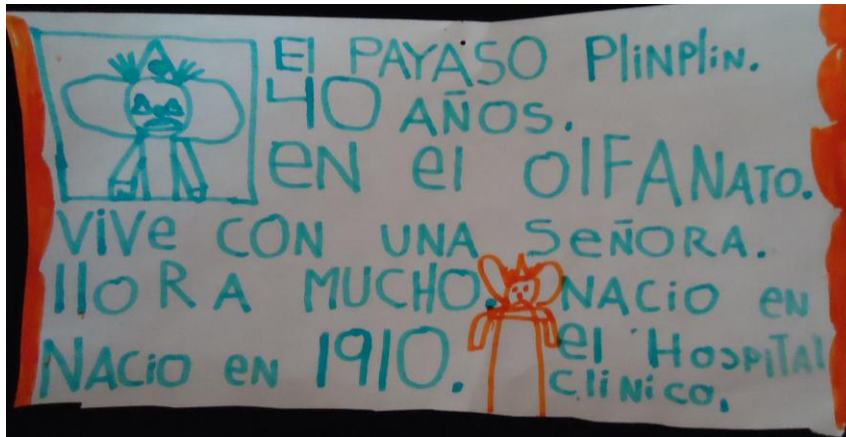 El PAYASO PliNPliN.
40 AÑOS.
eN el OlFANATO.
ViVe CON UNA SeÑORA.
lloRA MUCHO. NACiO eN
NACiO eN 1910. el HOSPiTAl
CliNiCO.